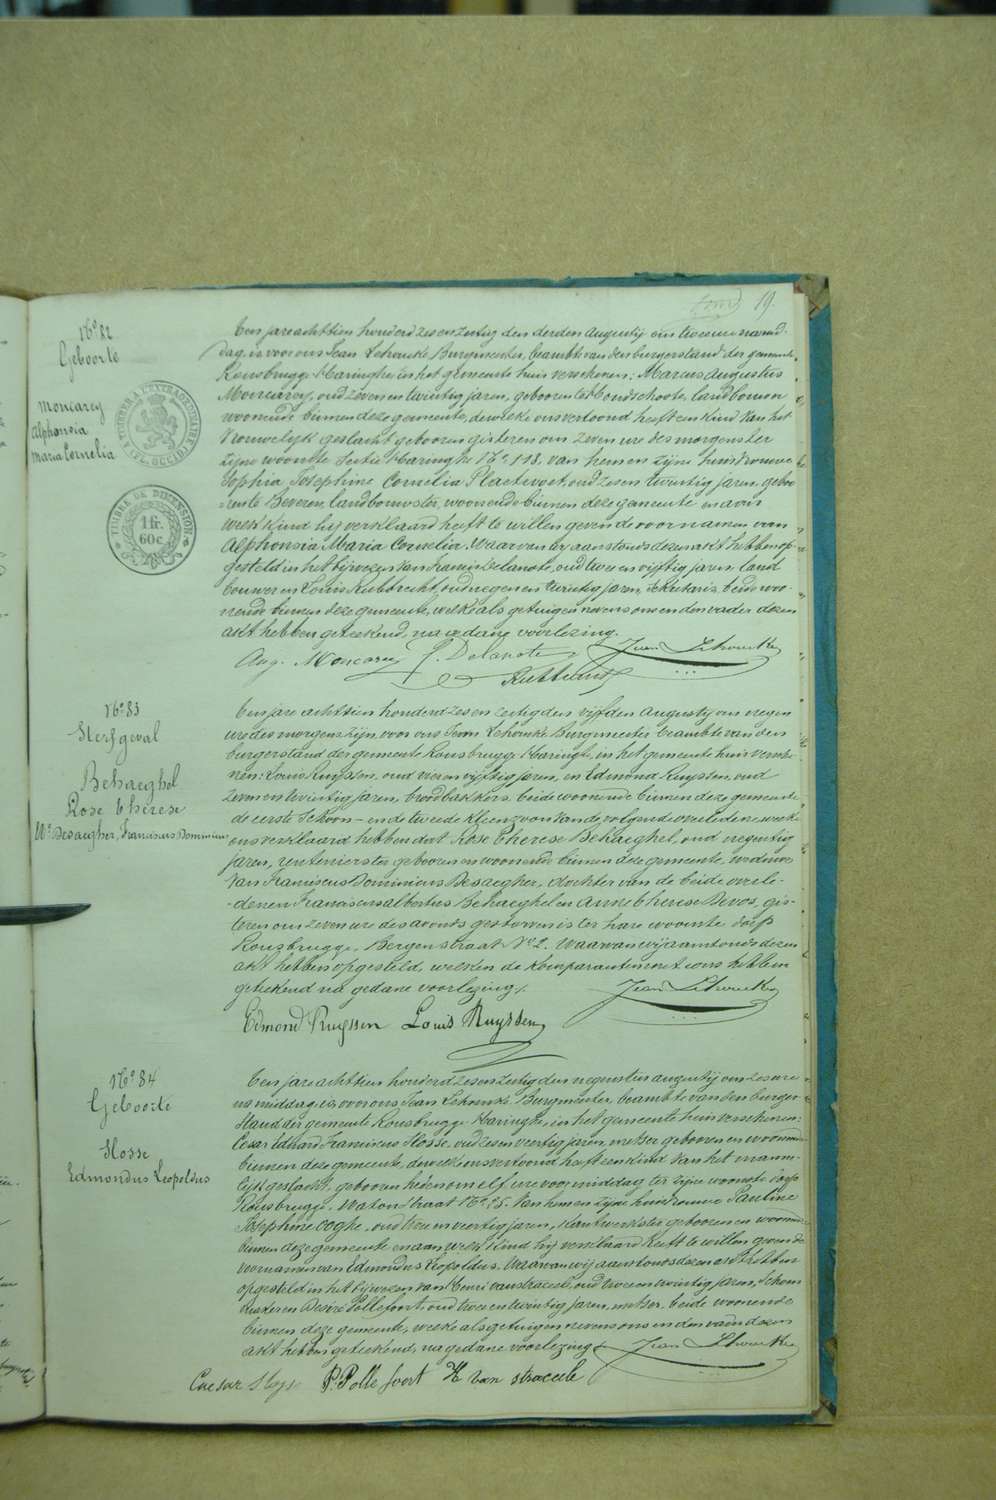 19.
Nº 82
Geboorte
Moncarey
Alphonsia
Maria Cornelia
TIMBRE DE DIMENSION
1 fr.
60 c.
Ten jare achttien honderd zes en zestig den derden Augustij om twee ure namid-
dag, is voor ons Jean Lehoucke Burgmeester, beambte van den burgerstand der gemeente
Rousbrugge-Haringhe, in het gemeente huis verschenen: Marcus Augustus
Moncarey, oud zeven en twintig jaren, geboren te Hondschoote, landbouwer
woonende binnen deze gemeente, dewelke ons vertoond heeft een kind van het
vrouwelijk geslacht geboren gisteren om zeven ure des morgens ter
zijne woonste Sectie Haringhe Nº 118, van hem en zijne huisvrouwe
Sophia Josephine Cornelia Plaetevoet, oud zes en twintig jaren, geboo-
ren te Beveren, landbouwster, woonende binnen deze gemeente en aan
welk kind hij verklaard heeft te willen geven de voornamen van
Alphonsia Maria Cornelia. Waarvan wij aanstonds dezen akt hebben op-
gesteld in het bijwezen van Delanote, oud twee en vijftig jaren, land
bouwer en Louis Rubbrecht, oud negen en twintig jaren, sekretaris, beide woo-
nende binnen deze gemeente, welke als getuigen nevens ons en den vader dezen
akt hebben geteekend, na gedane voorlezing.
Aug. Moncarey Delanote Jean Lehoucke
Rubbrecht
Nº 83
Sterfgeval
Behaeghel
Rose Therese
We Desaegher, Franciscus Dominicus
Ten jare achttien honderd zes en zestig den vijfden Augustij om negen
ure des morgens zijn voor ons Jean Lehoucke Burgmeester beambte van den
burgerstand der gemeente Rousbrugge-Haringhe, in het gemeente huis versche-
nen: Louis Ruyssen, oud en vijftig jaren, en Edmond Ruyssen, oud
zeven en twintig jaren, broodbakkers, beide woonende binnen deze gemeente
de eerste Schoon- en de tweede kleenzoon van de volgende overledene, welke
ons verklaard hebben dat Rose Therese Behaeghel, oud negentig
jaren, rentenierster geboren en woonende binnen deze gemeente, weduwe
van Franciscus Dominicus Desaegher, dochter van de beide overle-
denen Franciscus Albertus Behaeghel en Anne Therese Devos, gis-
teren om zeven ure des avonds gestorven is ter hare woonste dorp
Rousbrugge, Bergenstraat Nº 2. Waarvan wij aanstonds dezen
akt hebben opgesteld, welken de komparanten met ons hebben
geteekend na gedane voorlezing.
Jean Lehoucke
Edmond Ruyssen Louis Ruyssen
Nº 84
Geboorte
Hosse
Edmondus Leopoldus
Ten jare achttien honderd zes en zestig den negensten augustij om zes ure
namiddag, is voor ons Jean Lehoucke Burgmeester, beambte van den burger-
stand der gemeente Rousbrugge-Haringhe, in het gemeente huis verschenen:
Cesar Eduard Franciscus Hosse, oud zes en veertig jaren, metser geboren en woonende
binnen deze gemeente, dewelke ons vertoond heeft een kind van het manne-
lijk geslacht, geboren heden om elf ure voormiddag ter zijne woonste dorp
Rousbrugge, Watoustraat Nº 25. Van hem en zijne huisvrouwe Pauline
Josephine Coghe, oud en veertig jaren, kantwerkster geboren en woonende
binnen deze gemeente en aan welk kind hij verklaard heeft te willen geven de
voornamen van Edmondus Leopoldus. Waarvan wij aanstonds dezen akt hebben
opgesteld in het bijwezen van Henri van straceele, oud twee en twintig jaren, Schoen
maker en Desiré Pollefoort, oud twee en twintig jaren, metser, beide woonende
binnen deze gemeente, welke als getuigen nevens ons en den vader dezen
akt hebben geteekend, na gedane voorlezing.
Jean Lehoucke
Caesar P. Pollefoort H van straceele